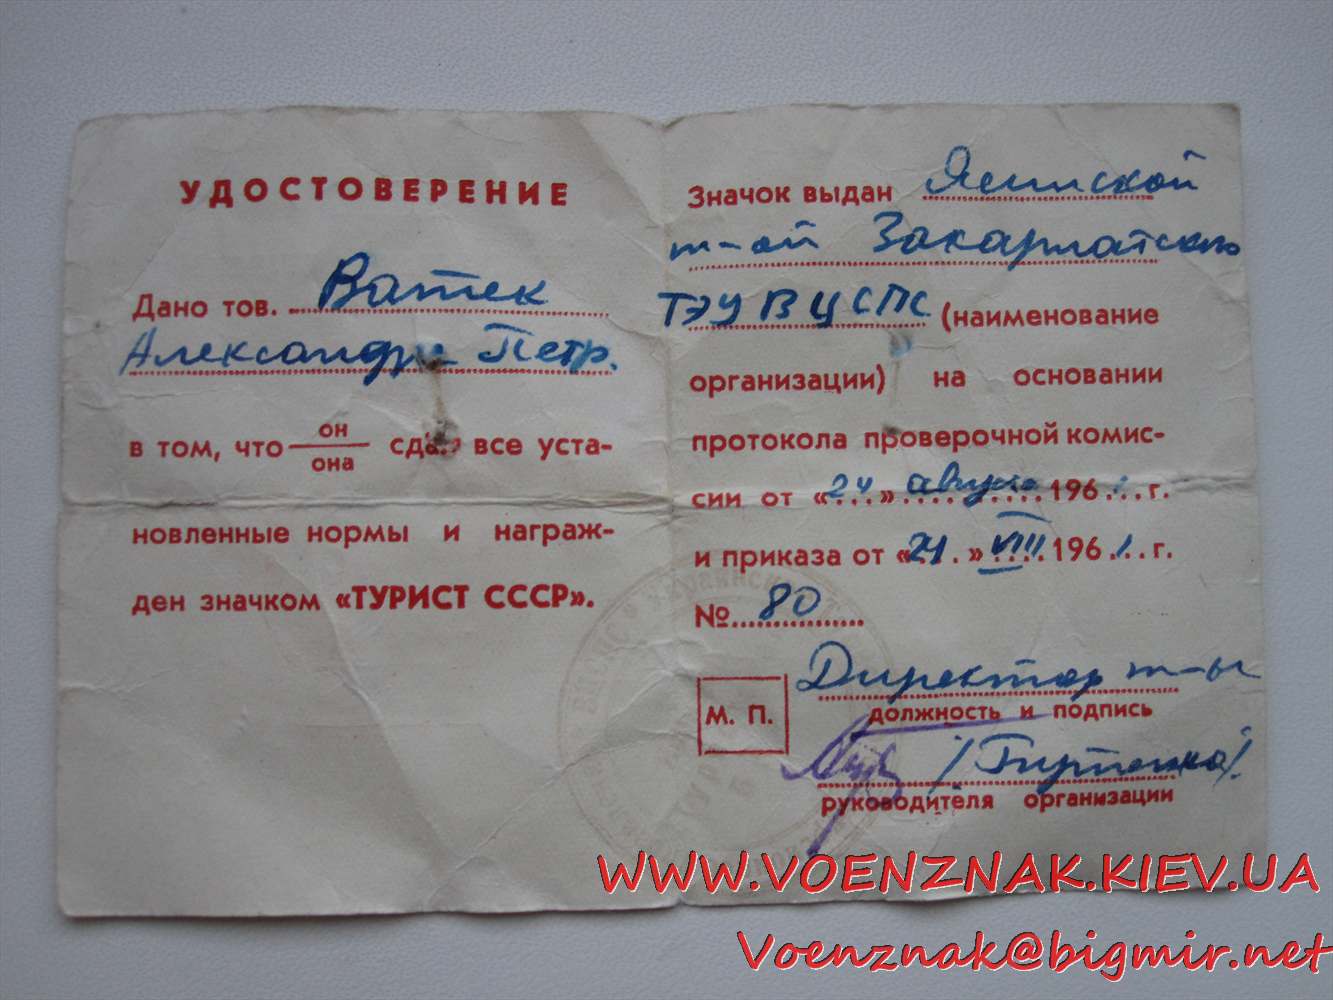 УДОСТОВЕРЕНИЕ
Дано тов. Ватек
Александр Петр.
в том, что он сдал все уста-
она
новленные нормы и награж-
ден значком «ТУРИСТ СССР».
Значок выдан Ясинской
т-ой Закарпатского
ТЭУ ВЦСПС (наименование
организации) на основании
протокола проверочной комис-
сии от «24» августа 1961 г.
и приказа от «24» VIII 1961 г.
№ 80
Директор т-ы
М. П.
должность и подпись
руководителя организации
WWW.VOENZNAK.KIEV.UA
Voenznak@bigmir.net